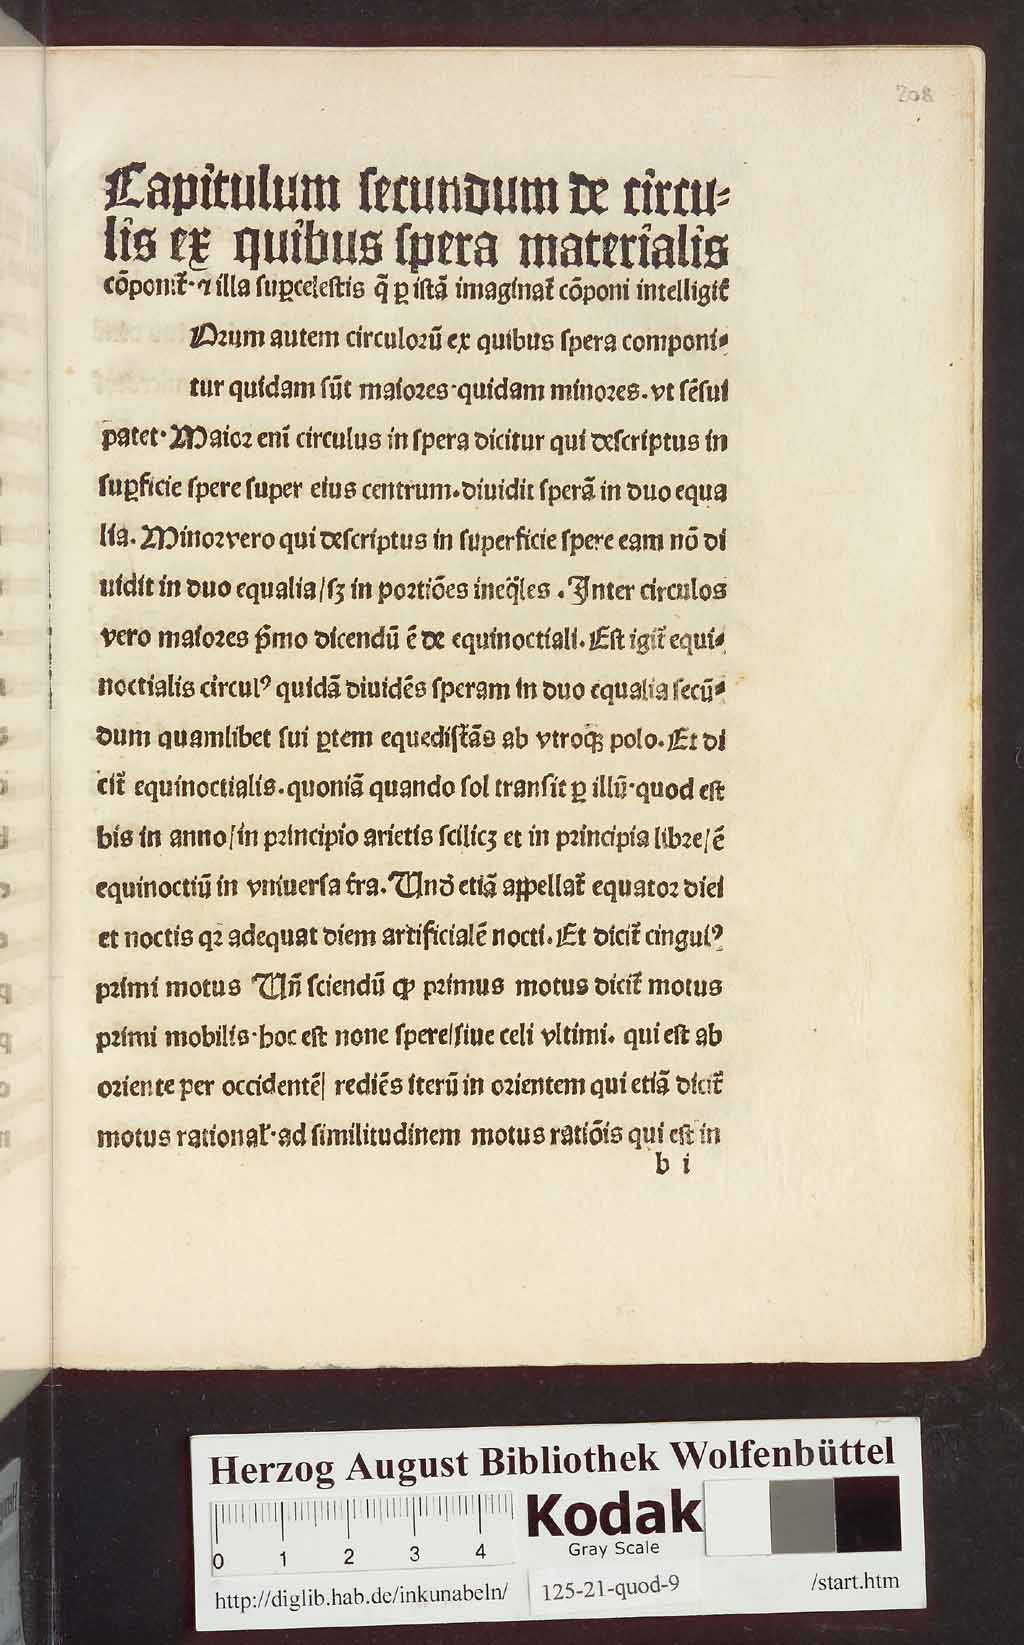 208
Capitulum ſecundum de circu⸗
lis ex quibus ſpera materialis
cōponit᷑· ⁊ illa ſuꝑceleſtis q̄ ꝑ iſtā imaginat᷑ cōponi intelligit᷑
Orum autem circuloꝛū ex quibus ſpera componi⸗
tur quidam ſūt maioꝛes·quidam minoꝛes. vt ſēſui
patet· Maioꝛ enī circulus in ſpera dicitur qui deſcriptus in
ſuꝑficie ſpere ſuper eius centrum. diuidit ſperā in duo equa
lia. Minoꝛ vero qui deſcriptus in ſuperficie ſpere eam nō di
uidit in duo equalia/ ſꝫ in poꝛtiōes ineq̄les . Inter circulos
vero maioꝛes p̄mo dicendū ē de equinoctiali. Eſt igit᷑ equi⸗
noctialis circulꝰ quidā diuidēs ſperam in duo equalia ſecū⸗
dum quamlibet ſui ꝑtem equediſtās ab vtroqꝫ polo. Et di
cit᷑ equinoctialis. quoniā quando ſol tranſit ꝑ illū·quod eſt
bis in anno/ in pꝛincipio arietis ſcilicꝫ et in pꝛincipia libꝛe/ ē
equinoctiū in vniuerſa t᷑ra. Vnd̄ etiā aꝑpellat᷑ equatoꝛ diei
et noctis qꝛ adequat diem artificialē nocti. Et dicit᷑ cingulꝰ
pꝛimi motus Vn̄ ſciendū ꝙ pꝛimus motus dicit᷑ motus
pꝛimi mobilis·hoc eſt none ſpere/ ſiue celi vltimi. qui eſt ab
oꝛiente per occidentē/ rediēs iterū in oꝛientem qui etiā dicit᷑
motus rational᷑·ad ſimilitudinem motus ratiōis qui eſt in
b i
Herzog August Bibliothek Wolfenbüttel
0 1 2 3 4
Kodak
Gray Scale
http://diglib.hab.de/inkunabeln/ 125-21-quod-9 /start.htm